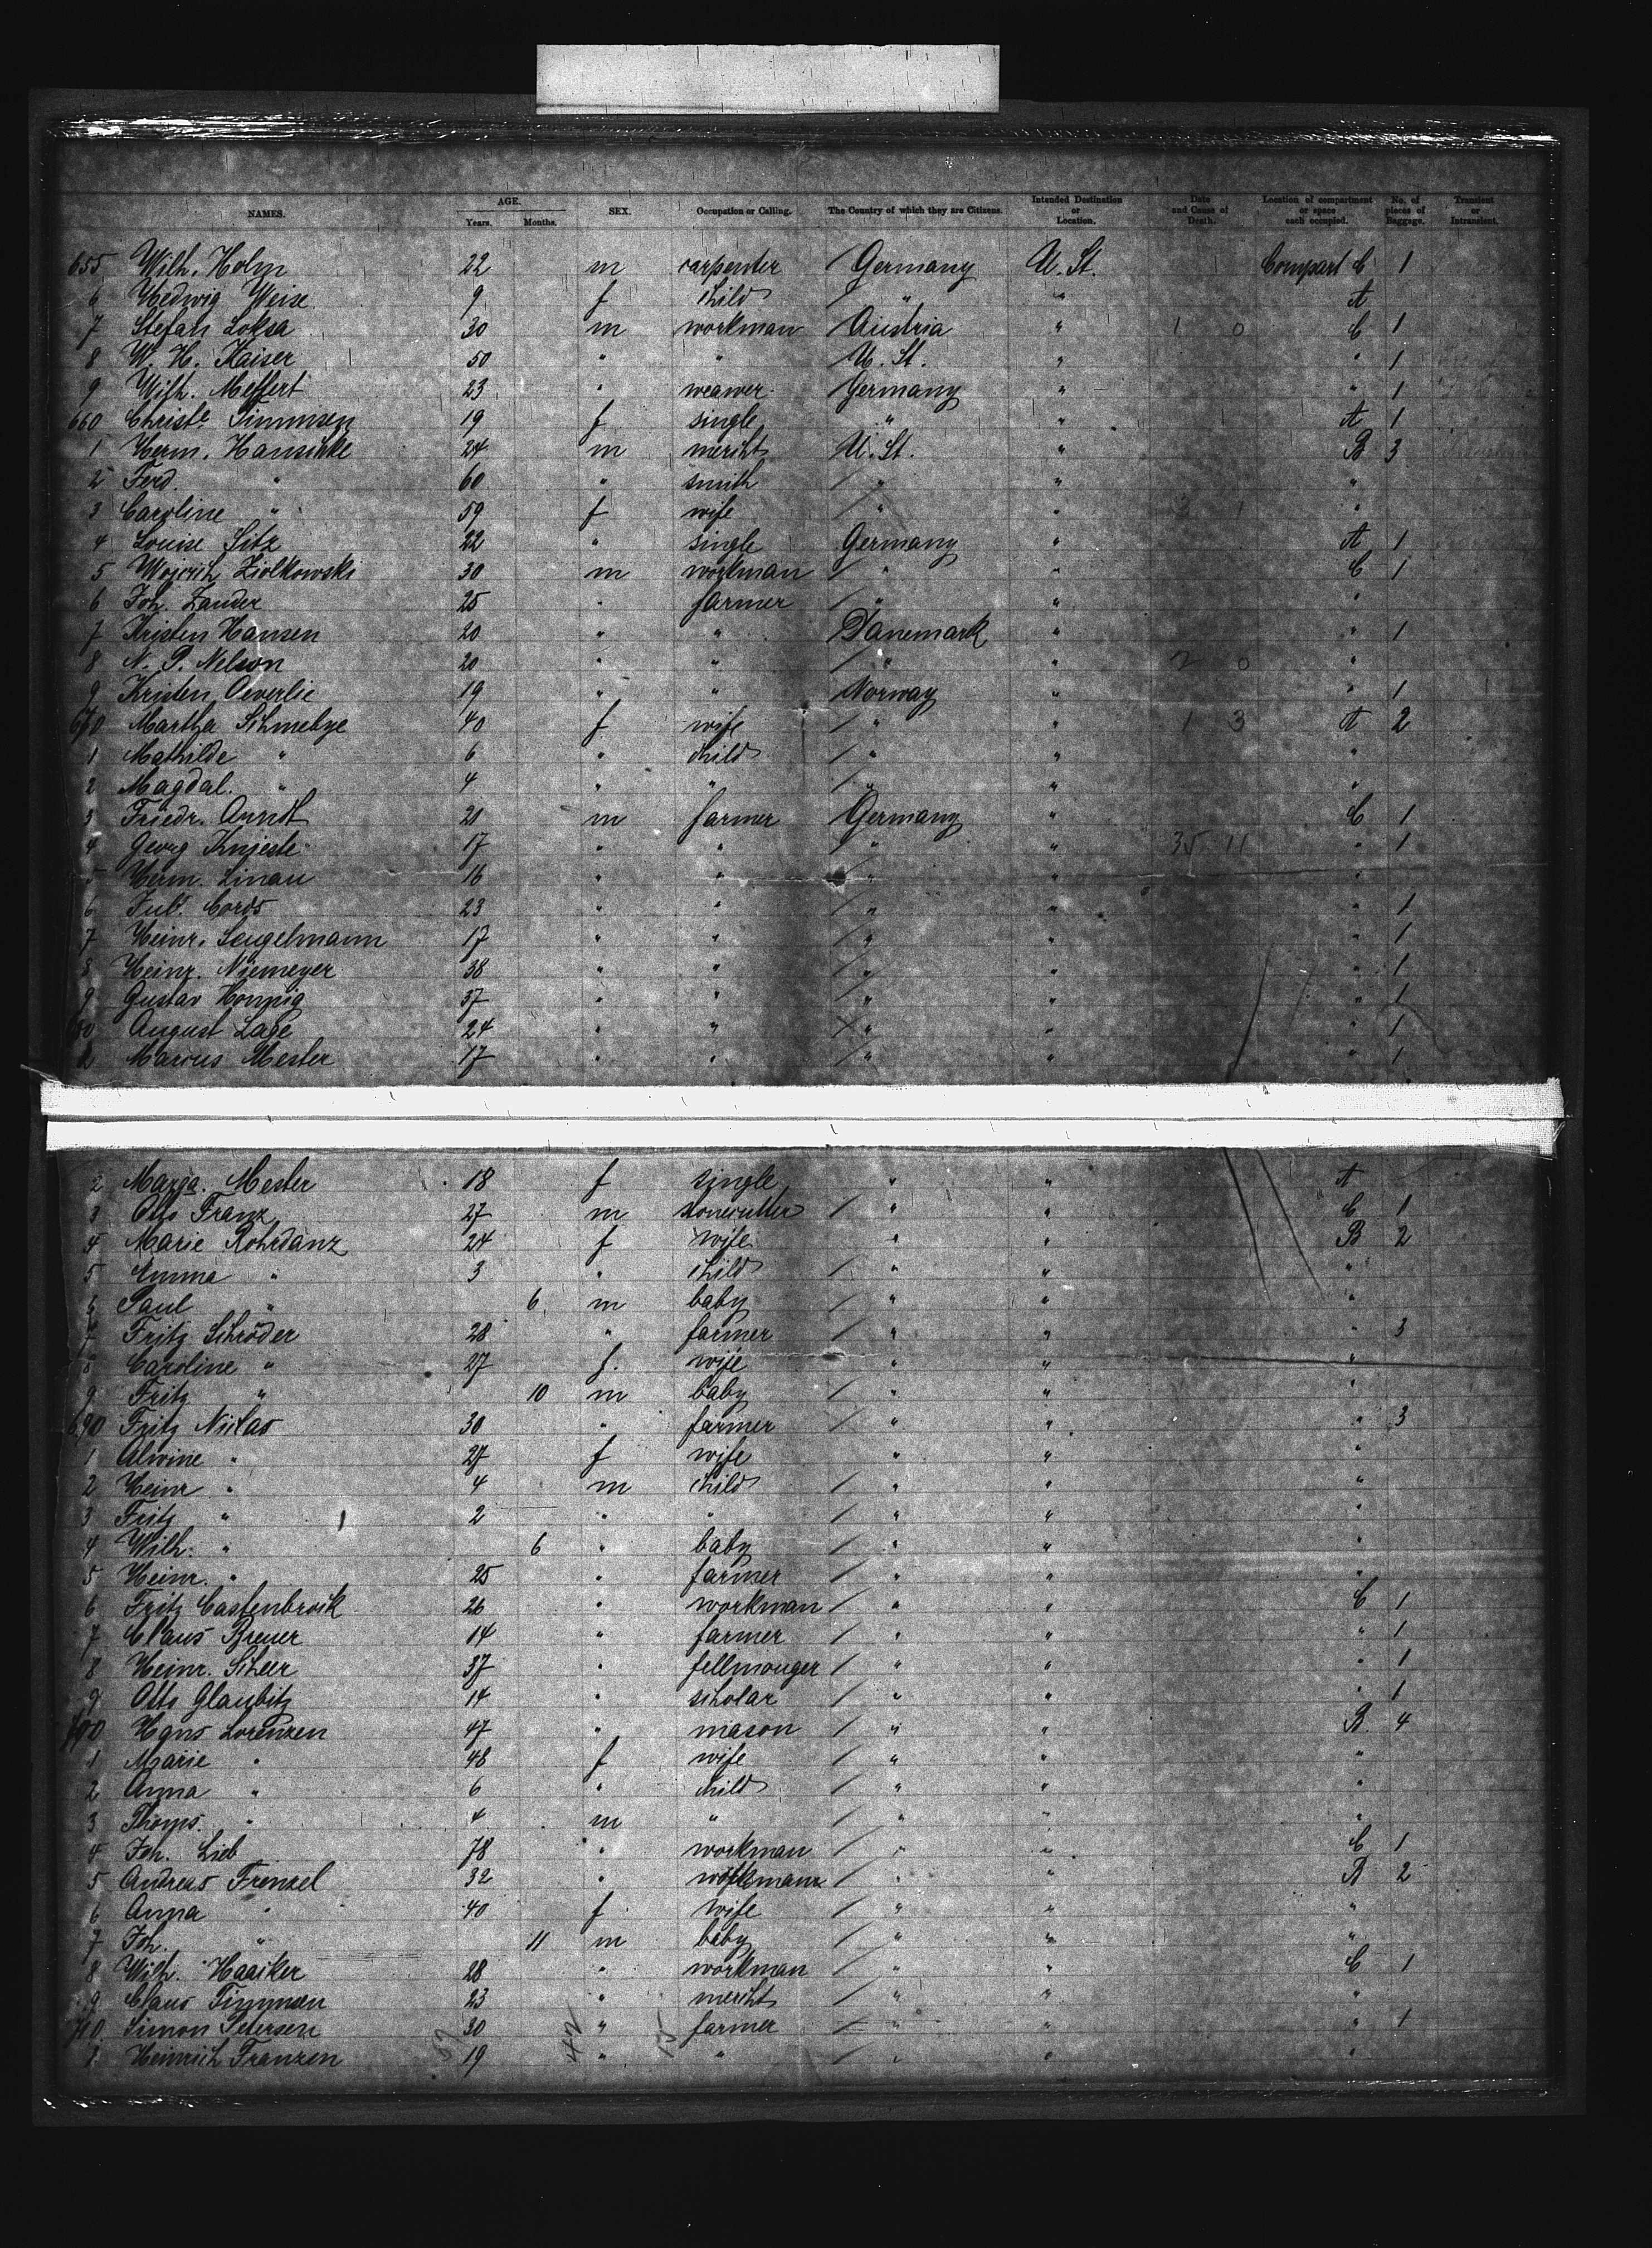 NAMES. AGE. Years. Months. SEX. Occupation or Calling. The Country of which they are Citizens. Intended Destination or Location. Date and Cause of Death. Location of compartment or space each occupied. No. of pieces of Baggage. Transient or Intransient.
655 Wilh. Holm 22 m carpenter Germany U. St. Compart C 1
6 Hedwig Weise 9 f child " " A
7 Stefan Loksa 30 m workman Austria " 1 0 C 1
8 W. H. Kaiser 50 " " U. St. " " 1
9 Wilh. Meffert 23 " weawer Germany " " 1
660 Christe. Simmisen 19 f single " " A 1
1 Herm. Hanschke 24 m mercht U. St. " B 3
2 Ferd. " 60 " smith / " " "
3 Caroline " 59 f wife " " "
4 Louise Sitz 22 " single Germany " A 1
5 Wojcich Ziolkowski 30 m workman / " " C 1
6 Joh. Zander 25 " farmer / " " "
7 Kristen Hansen 20 " " Danemark " " 1
8 N. P. Nelson 20 " " / " " 2 0 "
9 Kristen Oeverlie 19 " " Norway " " 1
670 Martha Schmebye 40 f wife / " " 1 3 A 2
1 Mathilde " 6 " child / " " "
2 Magdal. " 4 " " / " " "
3 Friedr. Arndt 21 m farmer Germany " C 1
4 Georg 17 " " / " " 35 11 " 1
5 Herm. Linau 16 " " / " " "
6 Juls. Cords 23 " " / " " " 1
7 Heinr. Sengelmann 17 " " / " " " 1
8 Heinr. Niemeyer 38 " " / " " " 1
9 Gustav Honnig 37 " " / " " " 1
680 August Lage 24 " " / " " " 1
Marius Mester 17 " " / " " " 1
2 Marga. Mester 18 f single " " A
3 Otto Franz 27 m stonecutter / " " C 1
4 Marie Rohrdanz 24 f wife " " B 2
5 Emma " 3 " child / " " "
6 Paul " 6 m baby / " " "
7 Fritz Schröder 28 " farmer / " " " 3
8 Caroline " 27 f. wife " " "
9 Fritz " 10 m baby / " " "
690 Fritz Niclas 30 " farmer / " " " 3
1 Alwine " 27 f wife " " "
2 Heinr " 4 m child / " " "
3 Fritz " 2 " " / " " "
4 Wilh. " 6 " baby / " " "
5 Heinr. " 25 " farmer / " " "
6 Fritz Castenbroik 26 " workman / " " C 1
7 Claus Breuer 14 " farmer / " " " 1
8 Heinr. Scheer 37 " fellmonger / " " " 1
9 Otto Glaubitz 14 " scholar / " " " 1
700 Hans Lorenzen 47 " mason / " " B 4
1 Marie " 48 f wife / " " "
2 Anna " 6 " child / " " "
3 Thoms. " 4 m " / " " "
4 Joh. Lieb 78 " workman / " " C 1
5 Andreas Frenzel 32 " workmann / " " B 2
6 Anna " 40 f wife / " " "
7 Joh. " 11 m baby / " " "
8 Wilh. Haaiker 28 " workman / " " C 1
9 Claus Timmsen 23 " mercht / " " "
710. Simon Petersen 30 " farmer / " " " 1
1 Heinrich Franzen 19 " " / " " "
42 15